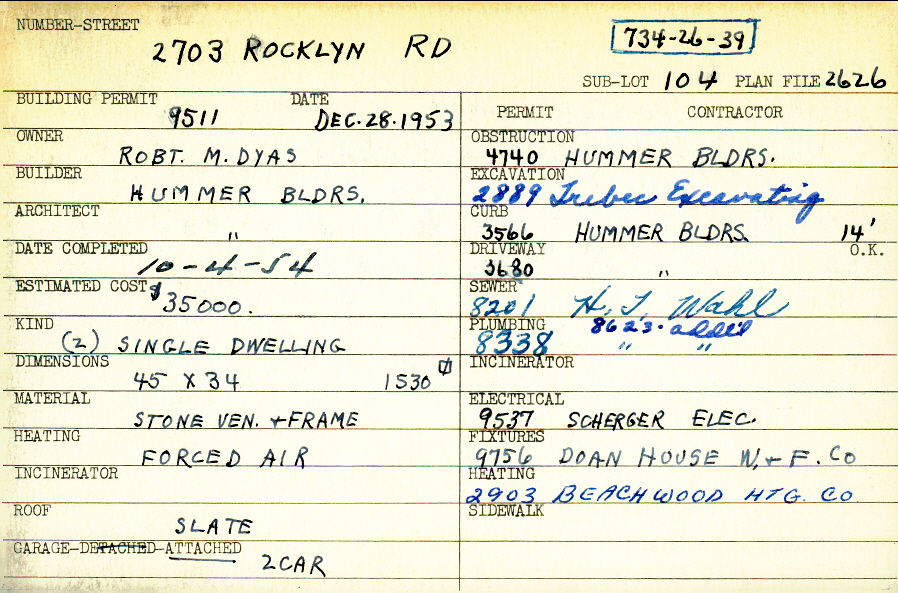 NUMBER-STREET
2703 ROCKLYN RD
734-26-39
SUB-LOT 104 PLAN FILE 2626
BUILDING PERMIT DATE
9511 DEC. 28. 1953
OWNER
ROBT. M. DYAS
BUILDER
HUMMER BLDRS.
ARCHITECT
"
DATE COMPLETED
10-4-54
ESTIMATED COST
$35000.
KIND
(2) SINGLE DWELLING
DIMENSIONS
45 X 34 1530
MATERIAL
STONE VEN. + FRAME
HEATING
FORCED AIR
INCINERATOR
ROOF
SLATE
GARAGE-DETACHED-ATTACHED
2 CAR
PERMIT CONTRACTOR
OBSTRUCTION
4740 HUMMER BLDRS.
EXCAVATION
2889 Excavating
CURB
3566 HUMMER BLDRS. 14'
DRIVEWAY O.K.
3680 "
SEWER
8201 H. J. Wahl
PLUMBING 8623. add'l
8338 " "
INCINERATOR
ELECTRICAL
9537 SCHERGER ELEC.
FIXTURES
9756 DOAN HOUSE W. + F. CO
HEATING
2903 BEACHWOOD HTG. CO
SIDEWALK